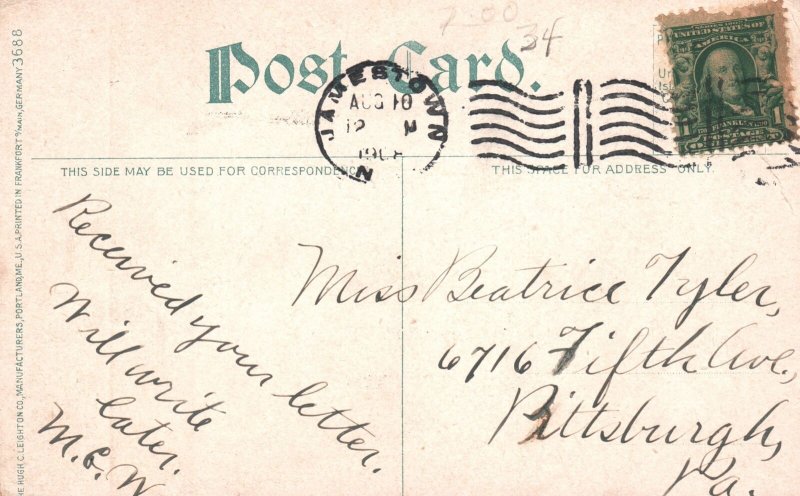 7-00
34
Post Card.
JAMESTOWN
AUG 10
12 M
190
N
SERIES 1902
UNITED STATES OF AMERICA
1
POSTAGE
THIS SIDE MAY BE USED FOR CORRESPONDENCE
THIS SPACE FOR ADDRESS ONLY.
Received your letter.
Will write
later.
M.C.W
Miss Beatrice Tyler,
6716 Fifth Ave.,
Pittsburgh,
Pa.
HUGH C. LEIGHTON CO., MANUFACTURERS, PORTLAND, ME., U.S.A. PRINTED IN FRANKFORT o/MAIN, GERMANY 3688